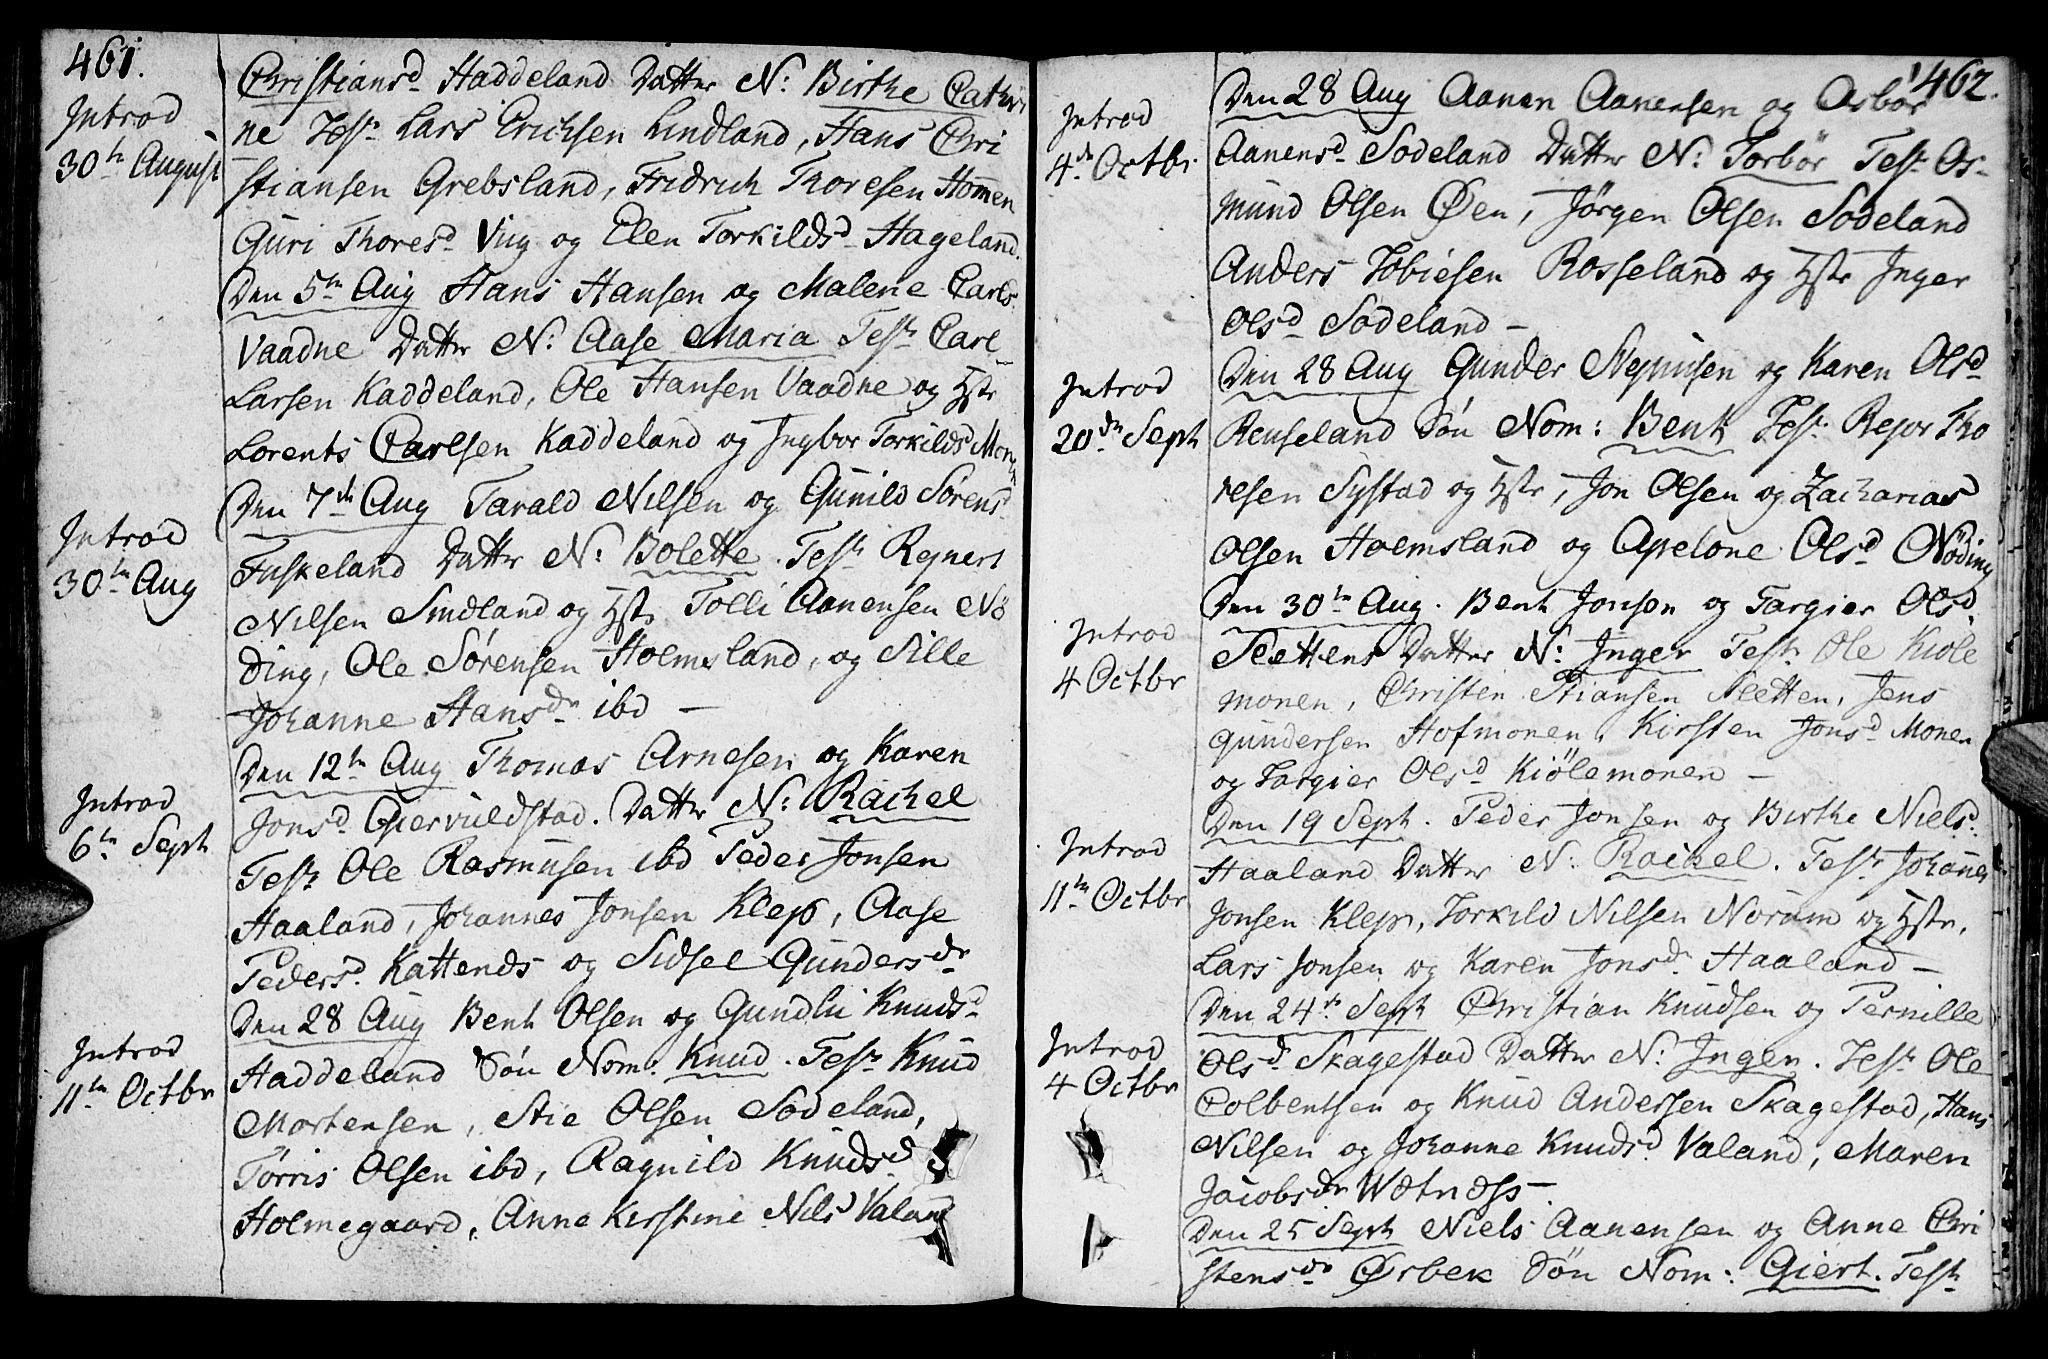 461.
Introd
30te August
Christiansd Haddeland Datter N: Birthe Cathri
ne Test: Lars Erichsen Lindland, Hans Chri
stiansen Grebsland, Fridrich Thoresen Homen
Guri Thoresd Viig og Elen Torkildsd Hageland.
Den 5te Aug Hans Hansen og Malene Carlsd
Vaadne Datter N: Aase Maria Test: Carl
Larsen Kaddeland, Ole Hansen Vaadne og Hstr
Lorents Carlsen Kaddeland og Ingbor Torkilds
Introd
30te Aug
Den 7de Aug Tarald Nilsen og Gunild Sørensd
Fuskeland Datter N: Bolette. Test: Regnert
Nilsen Sindland og Hstr Tolli Aanensen Nö
ding, Ole Sørensen Holmsland, og Sille
Johanne Hansdr ibd –
Introd
6te Sept
Den 12te Aug Thomas Arnesen og Karen
Jonsd Giervuldstad. Datter N: Rachel
Test: Ole Rasmusen ibd Peder Jonsen
Haaland, Johannes Jonsen Klep, Aase
Pedersd. Kattends og Sidsel Gundersdr
Introd
11te Octbr
Den 28 Aug Bent Olsen og Gundli Knudsd
Haddeland Sön Nom: Knud. Test: Knud
Mortensen, Stie Olsen Sodeland,
Törris Olsen ibd, Ragnild Knudsd
Holmegaard, Anne Kirstine Nilsd Valand
462.
Introd
4de Octbr
Den 28 Aug Aanen Aanensen og Asbor
Aanensd Sodeland Datter N: Torbör Test: Os-
mund Olsen Øen, Jörgen Olsen Sodeland
Anders Tobiesen Rosseland og Hstr Inger
Olsd Sodeland –
Introd
20de Sept
Den 28 Aug Gunder Sepnisen og Karen Olsd
Renseland Sön Nom: Bent Test: Rejor Tho
resen Systad og Hstr, Jon Olsen og Zacharias
Olsen Holmsland og Apelone Olsd Nöding
Introd
4 Octbr
Den 30te Aug. Bent Jonsen og Targier Olsd.
Slettens Datter N: Inger Test: Ole Kiöle
monen, Christen Stiansen Sletten, Jens
Gundersen Hofmonen, Kirsten Jonsd Monen
og Targier Olsd Kiölemonen –
Introd
11te Octbr
Den 19 Sept. Peder Jonsen og Birthe Nielsd:
Haaland Datter N: Rachel. Test: Johannes
Jonsen Klep, Torkild Nilsen Norum og Hstr,
Lars Jonsen og Karen Jonsdr Haaland –
Introd
4 Octbr
Den 24de Sept Christian Knudsen og Pernille
Olsd Skagestad Datter N: Inger. Test: Ole
Colbentsen og Knud Andersen Skagestad, Hans
Nilsen og Johanne Knudsd Valand, Maren
Jacobsdr Wetness –
Den 25 Sept Niels Aanensen og Anne Chri
stensdr Ørbek Sön Nom: Giert. Test: